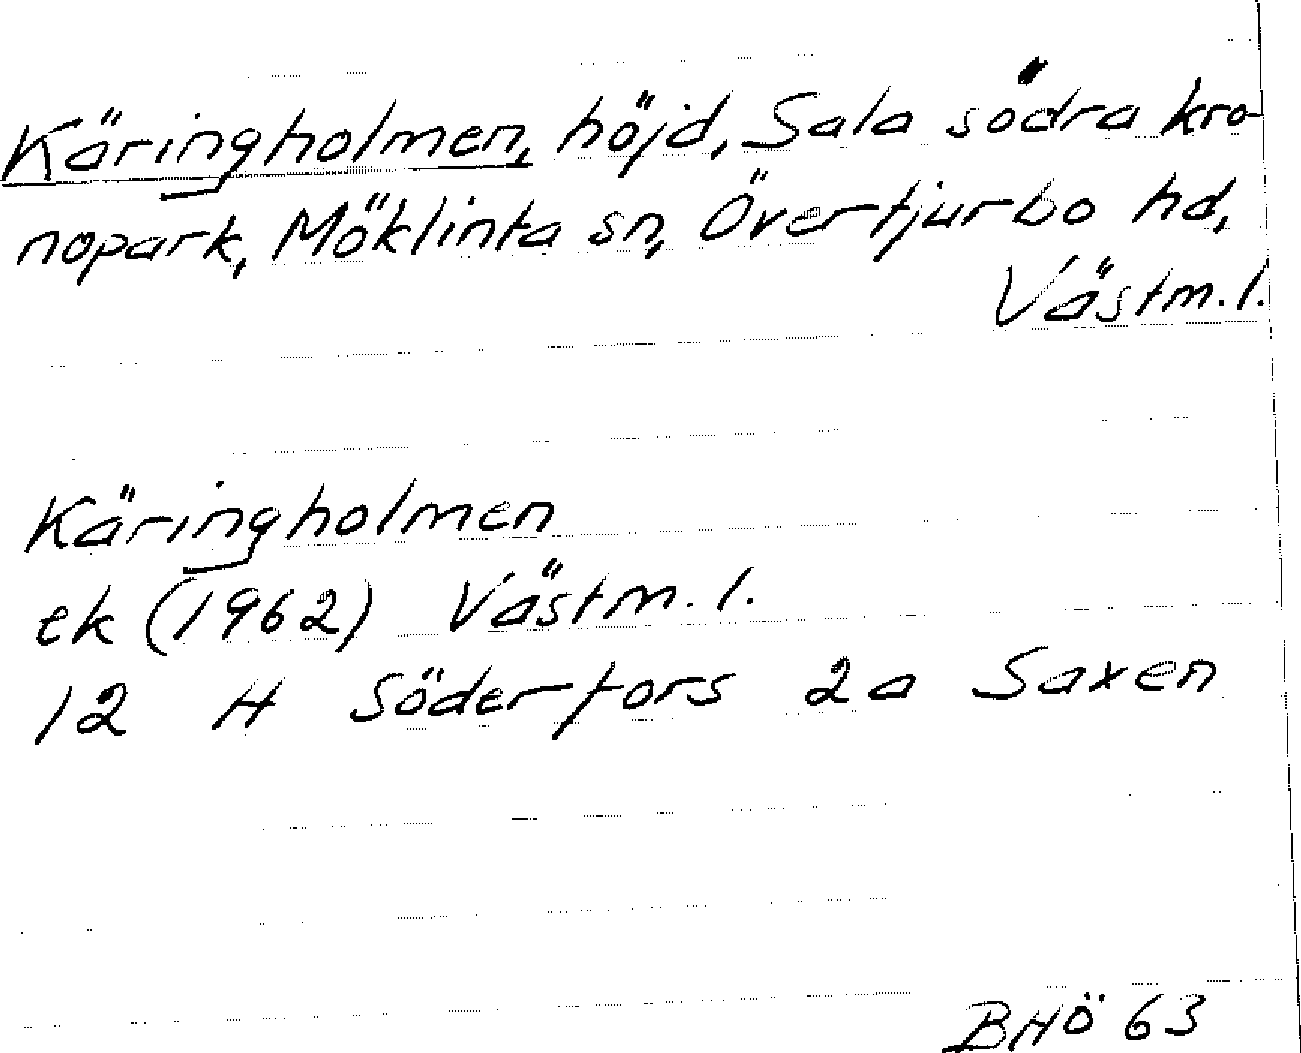 Käringholmen, höjd, Sala södra kro-
nopark, Möklinta sn, Övertjurbo hd,
Västm. l.
Käringholmen
ek (1962) Västm. l.
12 H Söderfors 2a Saxen
BHÖ 63